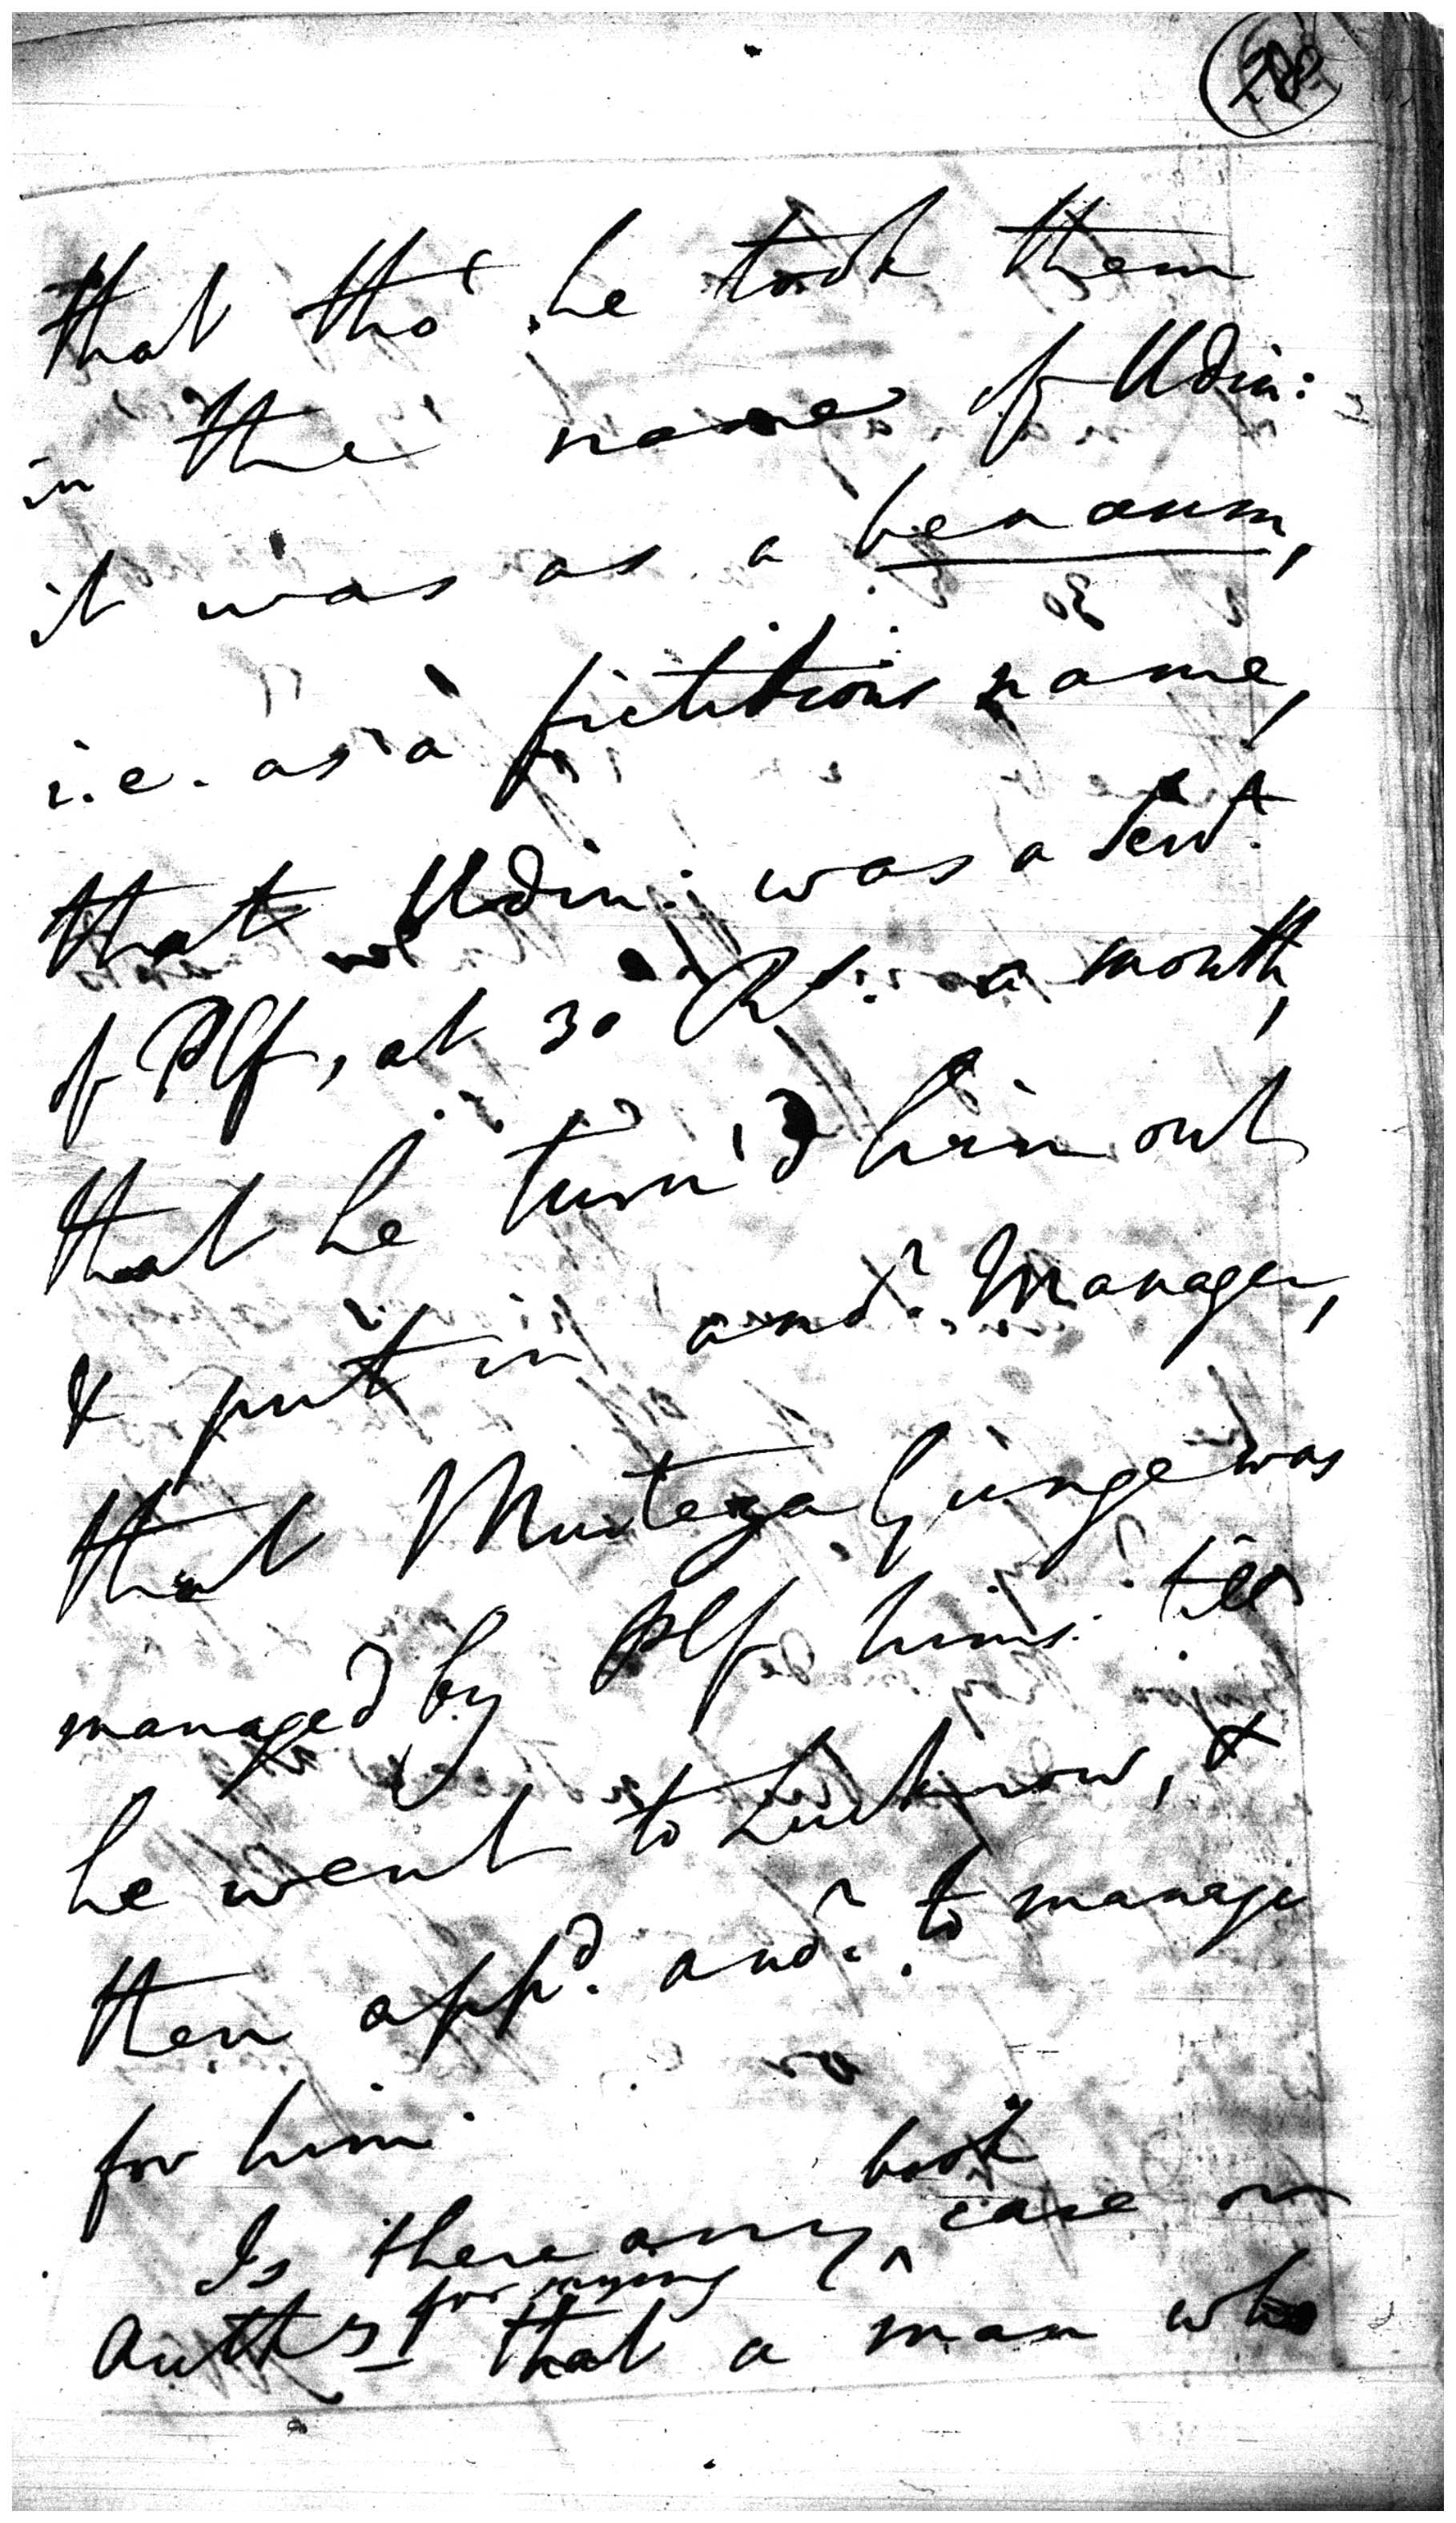 that tho' he took them
in the name of Udin:
it was as a benaum,
i.e. as a fictitious name,
that Udin: was a Servt.
of Plf, at 30 Rs. a month,
that he turn'd him out
& put in anor. Manager,
that Murteza Gunge was
managed by Plf hims: till
he went to Lucknow, &
then appd. anor. to manage
for him.
book
Is there any ^ case or
for saying
Authy that a man who